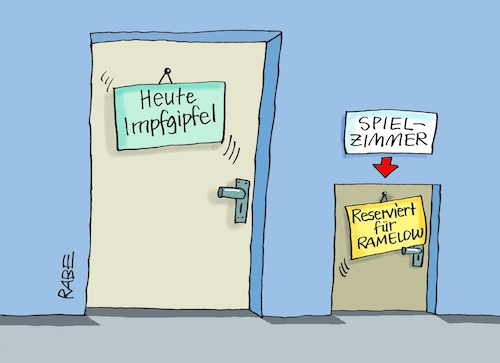 Heute
Impfgipfel
SPIEL-
ZIMMER
Reserviert
für
RAMELOW
RABE